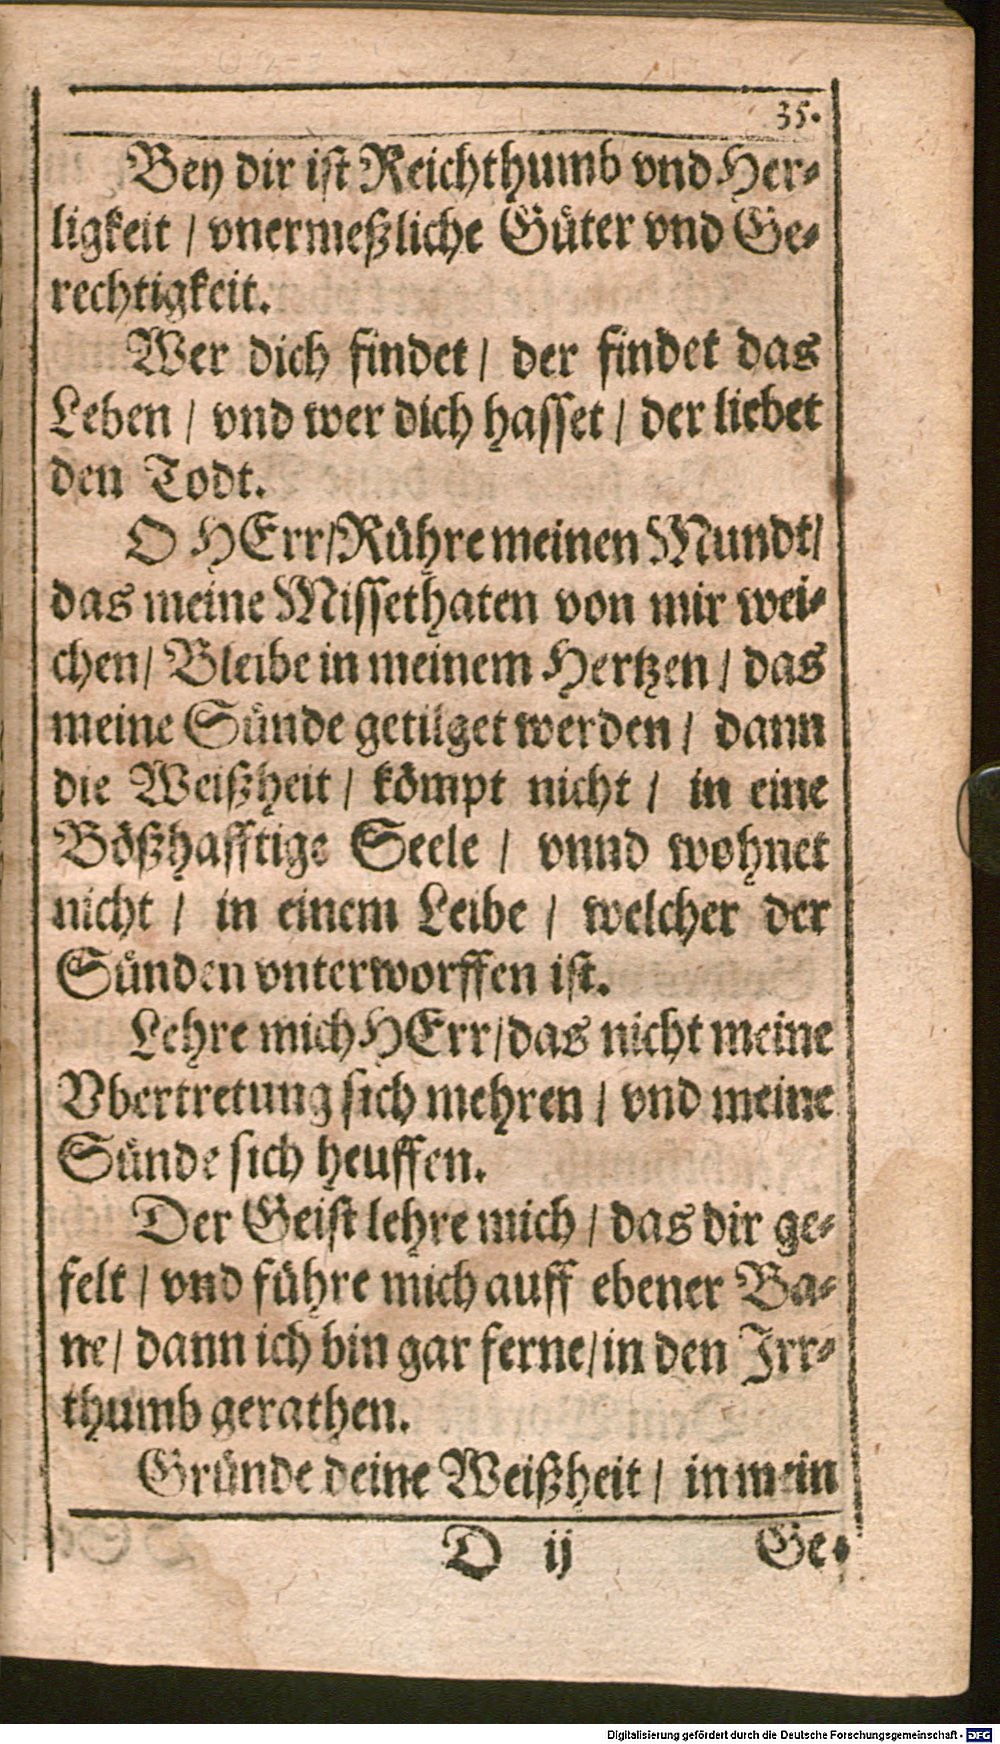 35.
Bey dir ist Reichthumb vnd Her-
ligkeit / vnermeßliche Güter vnd Ge-
rechtigkeit.
Wer dich findet / der findet das
Leben / vnd wer dich hasset / der liebet
den Todt.
O HErr / Rühre meinen Mundt /
das meine Missethaten von mir wei-
chen / Bleibe in meinem Hertzen / das
meine Sünde getilget werden / dann
die Weißheit / kömpt nicht / in eine
Bößhafftige Seele / vnnd wohnet
nicht / in einem Leibe / welcher der
Sünden vnterworffen ist.
Lehre mich HErr / das nicht meine
Vbertretung sich mehren / vnd meine
Sünde sich heuffen.
Der Geist lehre mich / das dir ge-
felt / vnd führe mich auff ebener Ba-
ne / dann ich bin gar ferne / in den Irr-
thumb gerathen.
Gründe deine Weißheit / in mein
D ij Ge-
Digitalisierung gefördert durch die Deutsche Forschungsgemeinschaft - DFG